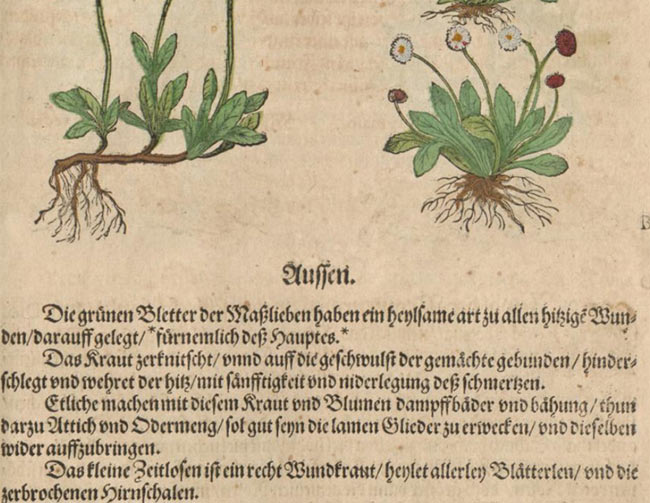 Aussen.
Die grünen Bletter der Maßlieben haben ein heylsame art zu allen hitzigē Wun-
den/darauff gelegt/ *fürnemlich deß Hauptes.*
Das Kraut zerknitscht/ vnnd auff die geschwulst der gemächte gebunden/ hinder-
schlegt vnd wehret der hitz/mit sänfftigkeit vnd niderlegung deß schmertzen.
Etliche machen mit diesem Kraut vnd Blumen dampffbäder vnd bähung/ thun
darzu Attich vnd Odermeng/ sol gut seyn die lamen Glieder zu erwecken/ vnd dieselben
wider auffzubringen.
Das kleine Zeitlosen ist ein recht Wundkraut/ heylet allerley Blätterlen/ vnd die
zerbrochenen Hirnschalen.